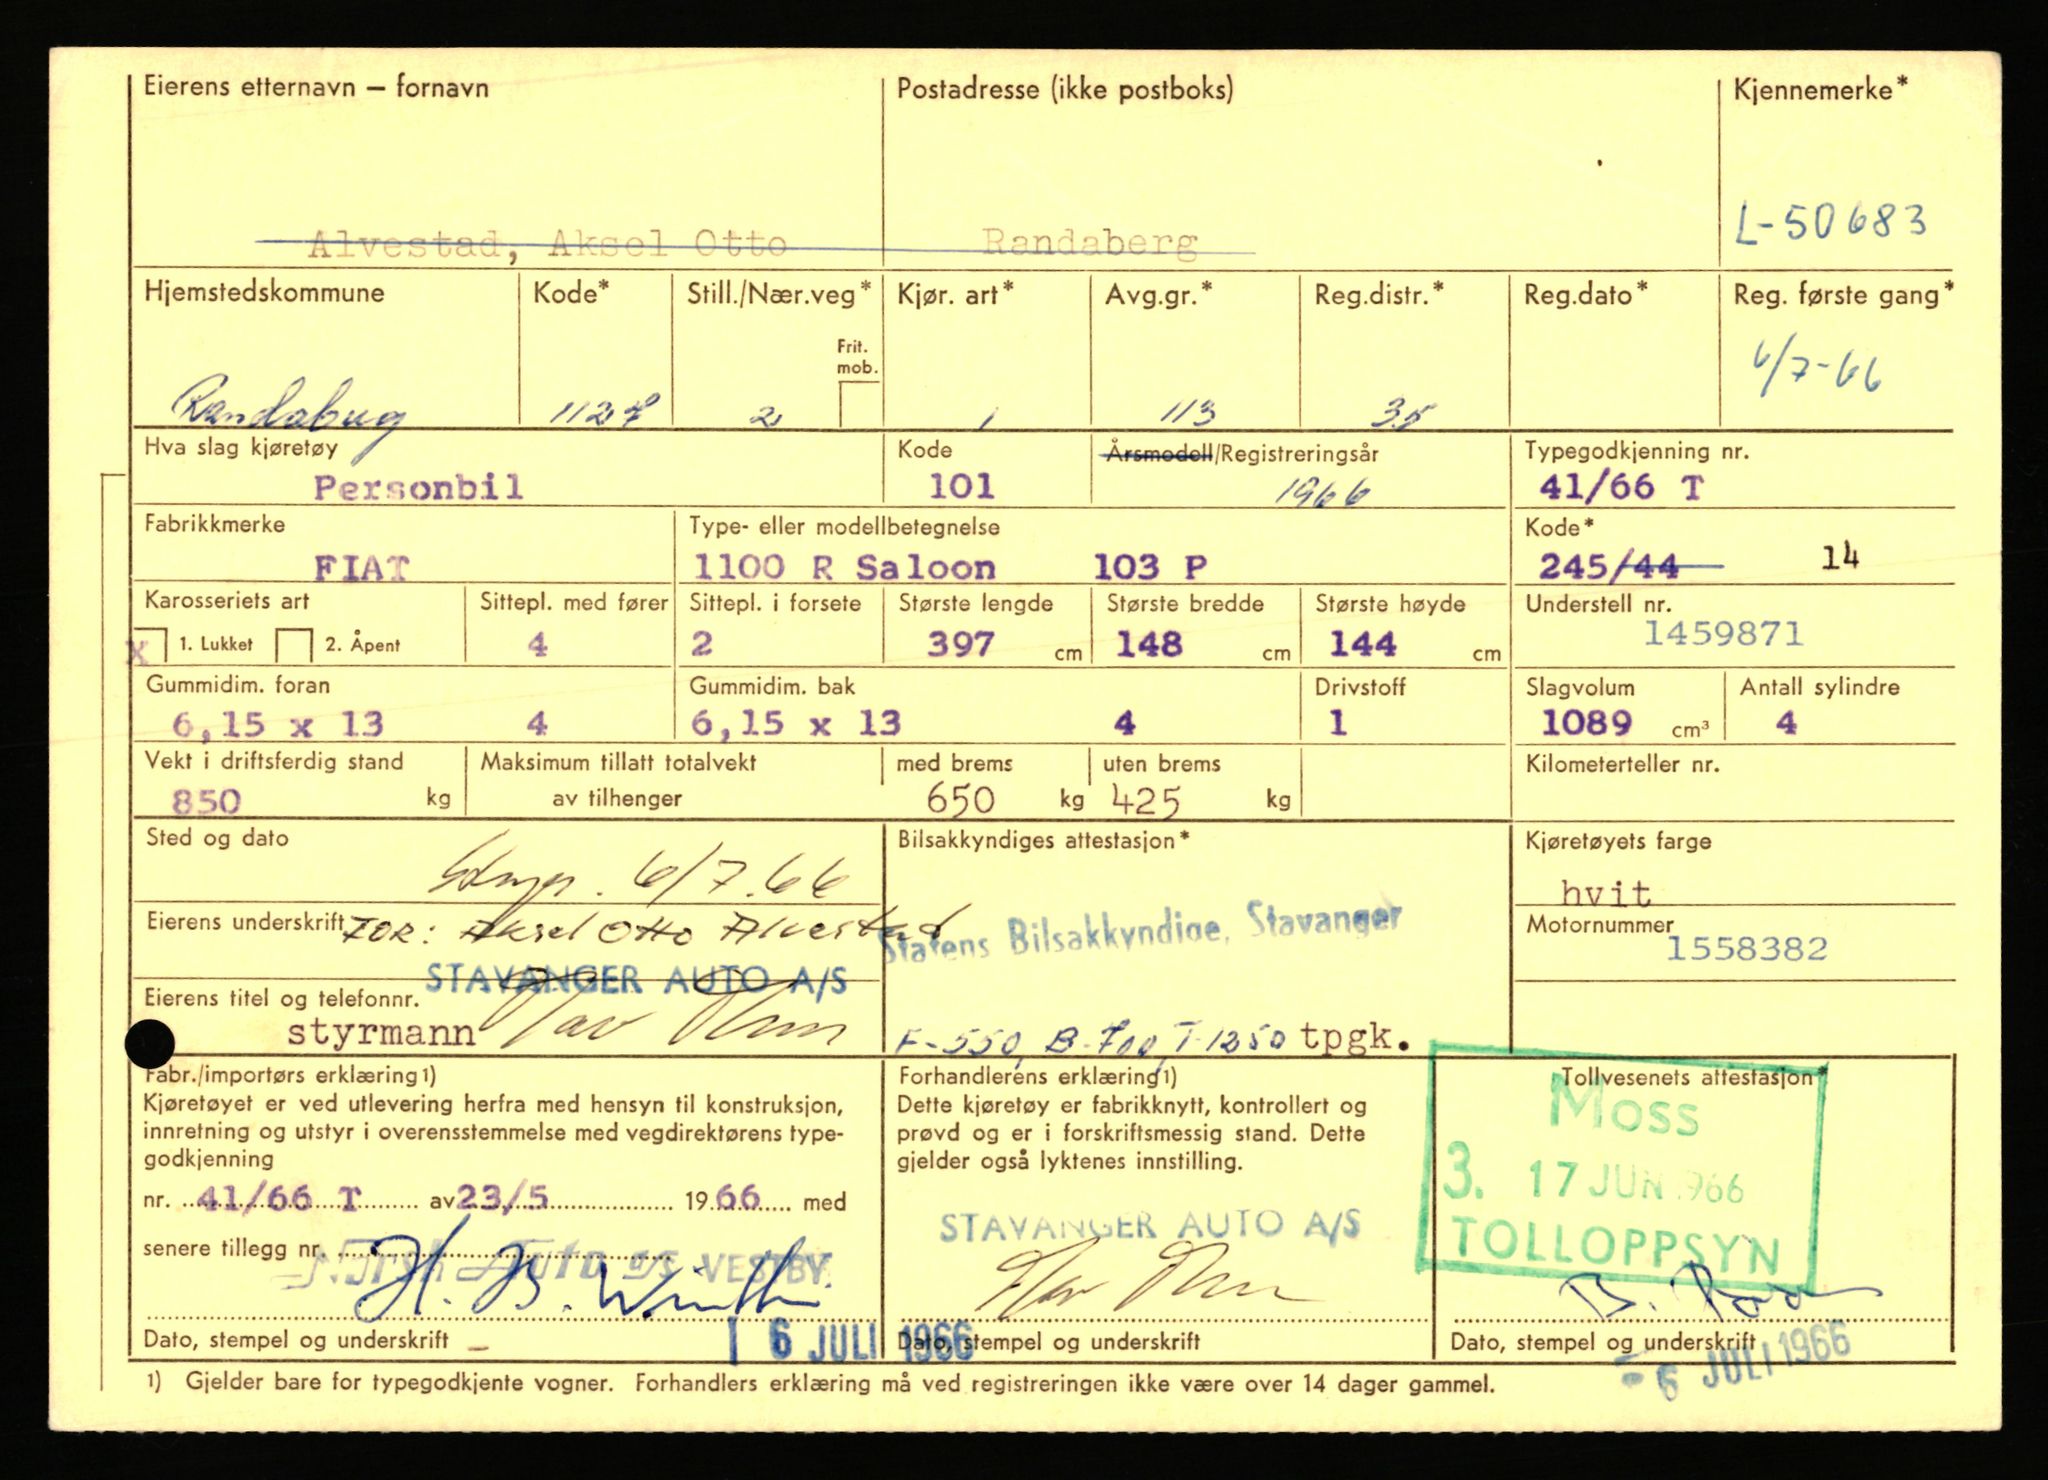 Eierens etternavn – fornavn
Postadresse (ikke postboks)
Kjennemerke*
Alvestad, Aksel Otto
Randaberg
L-50683
Hjemstedskommune
Kode*
Still./Nær.veg*
Kjør. art*
Avg.gr.*
Reg.distr.*
Reg.dato*
Reg. første gang*
Frit. mob.
Randaberg
1127
2
1
113
35
6/7-66
Hva slag kjøretøy
Kode
Årsmodell/Registreringsår
Typegodkjenning nr.
Personbil
101
1966
41/66 T
Fabrikkmerke
Type- eller modellbetegnelse
Kode*
FIAT
1100 R Saloon 103 P
245/44 14
Karosseriets art
Sittepl. med fører
Sittepl. i forsete
Største lengde
Største bredde
Største høyde
Understell nr.
x 1. Lukket 2. Åpent
4
2
397 cm
148 cm
144 cm
1459871
Gummidim. foran
Gummidim. bak
Drivstoff
Slagvolum
Antall sylindre
6,15 x 13 4
6,15 x 13 4
1
1089 cm³
4
Vekt i driftsferdig stand
Maksimum tillatt totalvekt
med brems
uten brems
Kilometerteller nr.
850 kg
av tilhenger
650 kg
425 kg
Sted og dato
Bilsakkyndiges attestasjon*
Kjøretøyets farge
6/7.66
hvit
Eierens underskrift FOR: Aksel Otto Alvestad
Statens Bilsakkyndige, Stavanger
Motornummer
1558382
STAVANGER AUTO A/S
Eierens titel og telefonnr.
styrmann
F-550, B-700, T-1250 tpgk.
Fabr./importørs erklæring 1)
Kjøretøyet er ved utlevering herfra med hensyn til konstruksjon,
innretning og utstyr i overensstemmelse med vegdirektørens type-
godkjenning
nr. 41/66 T av 23/5 1966 med
senere tillegg nr.
Norsk Auto a/s VESTBY.
Dato, stempel og underskrift
Forhandlerens erklæring 1)
Dette kjøretøy er fabrikknytt, kontrollert og
prøvd og er i forskriftsmessig stand. Dette
gjelder også lyktenes innstilling.
STAVANGER AUTO A/S
6 JULI 1966
Dato, stempel og underskrift
Tollvesenets attestasjon*
MOSS
3. 17 JUN 1966
TOLLOPPSYN
Dato, stempel og underskrift
- 6 JULI 1966
1) Gjelder bare for typegodkjente vogner. Forhandlers erklæring må ved registreringen ikke være over 14 dager gammel.